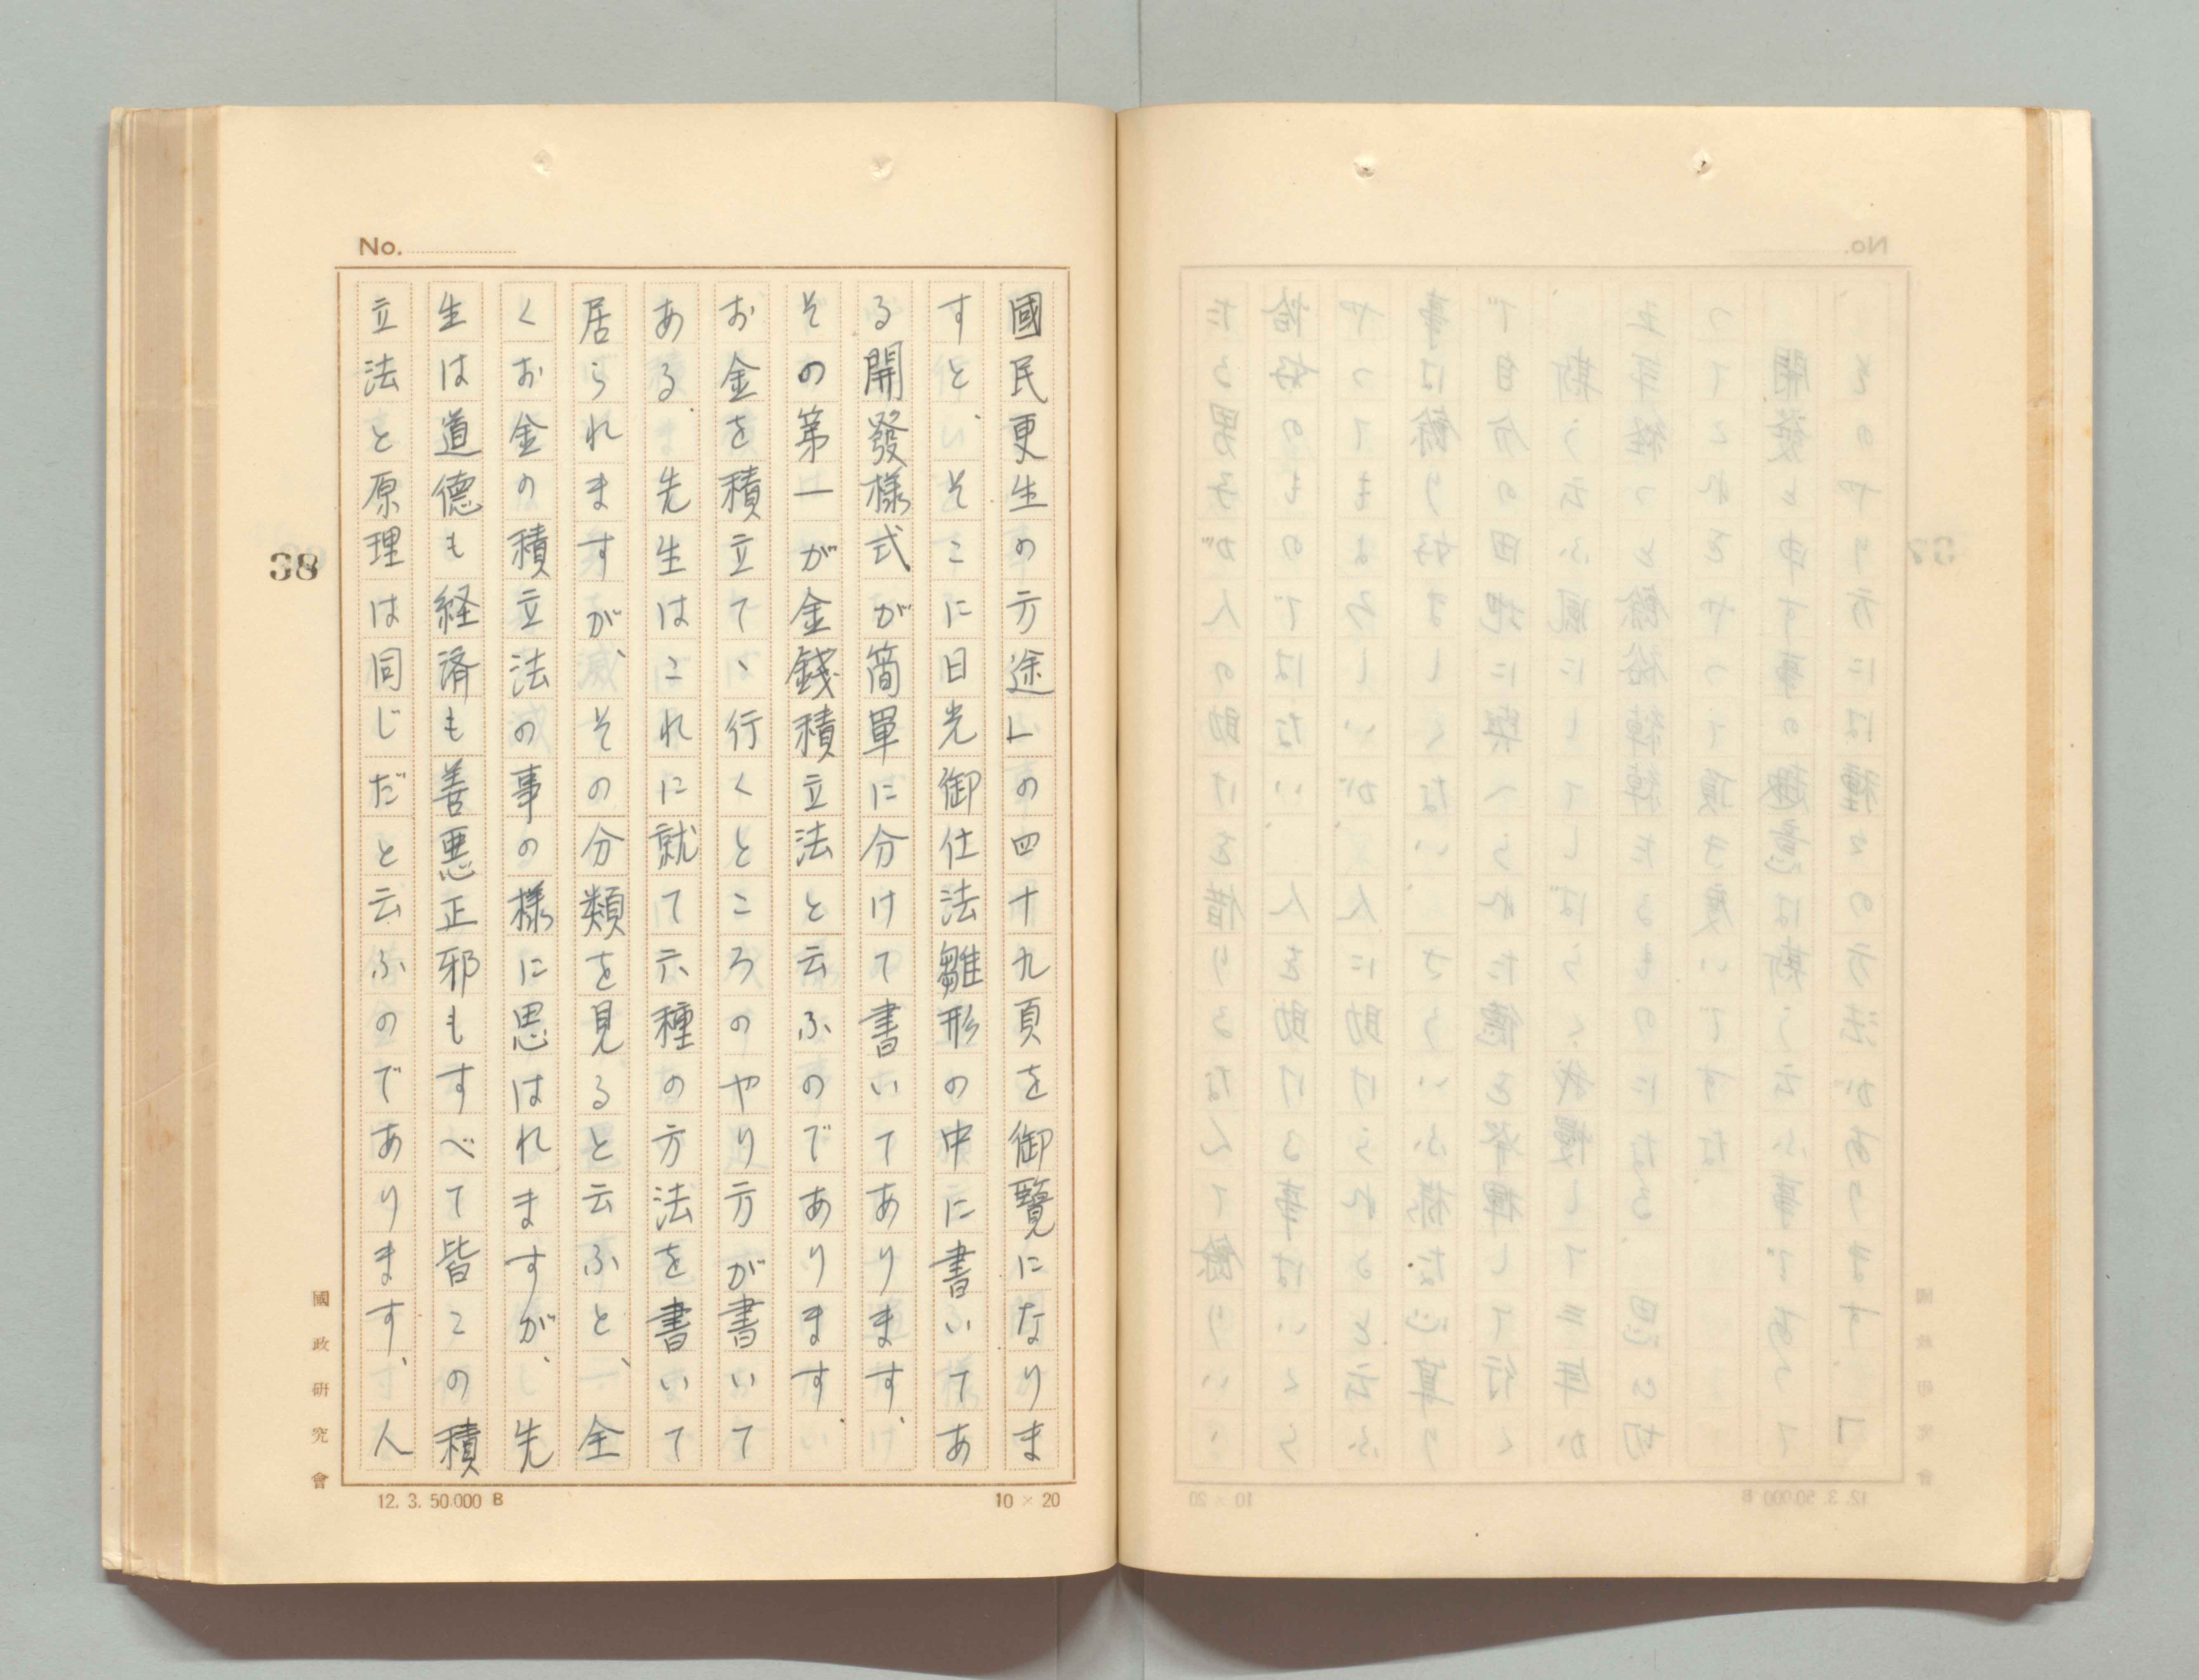 No.
國民更生の方途」の四十九頁を御覽になりま
すと、そこに日光御仕法雛形の中に書いてあ
る開發樣式が簡單に分けて書いてあります、
その第一が金錢積立法と云ふのであります、
お金を積立て、行くところのやり方が書いて
ある、先生はこれに就て六種の方法を書いて
居られますが、その分類を見ると云ふと、全
くお金の積立法の事の樣に思はれますが、先
生は道德も経済も善悪正邪もすべて皆この積
立法と原理は同じだと云ふのであります、人
38
國政研究會
12. 3. 50.000 B
10 × 20